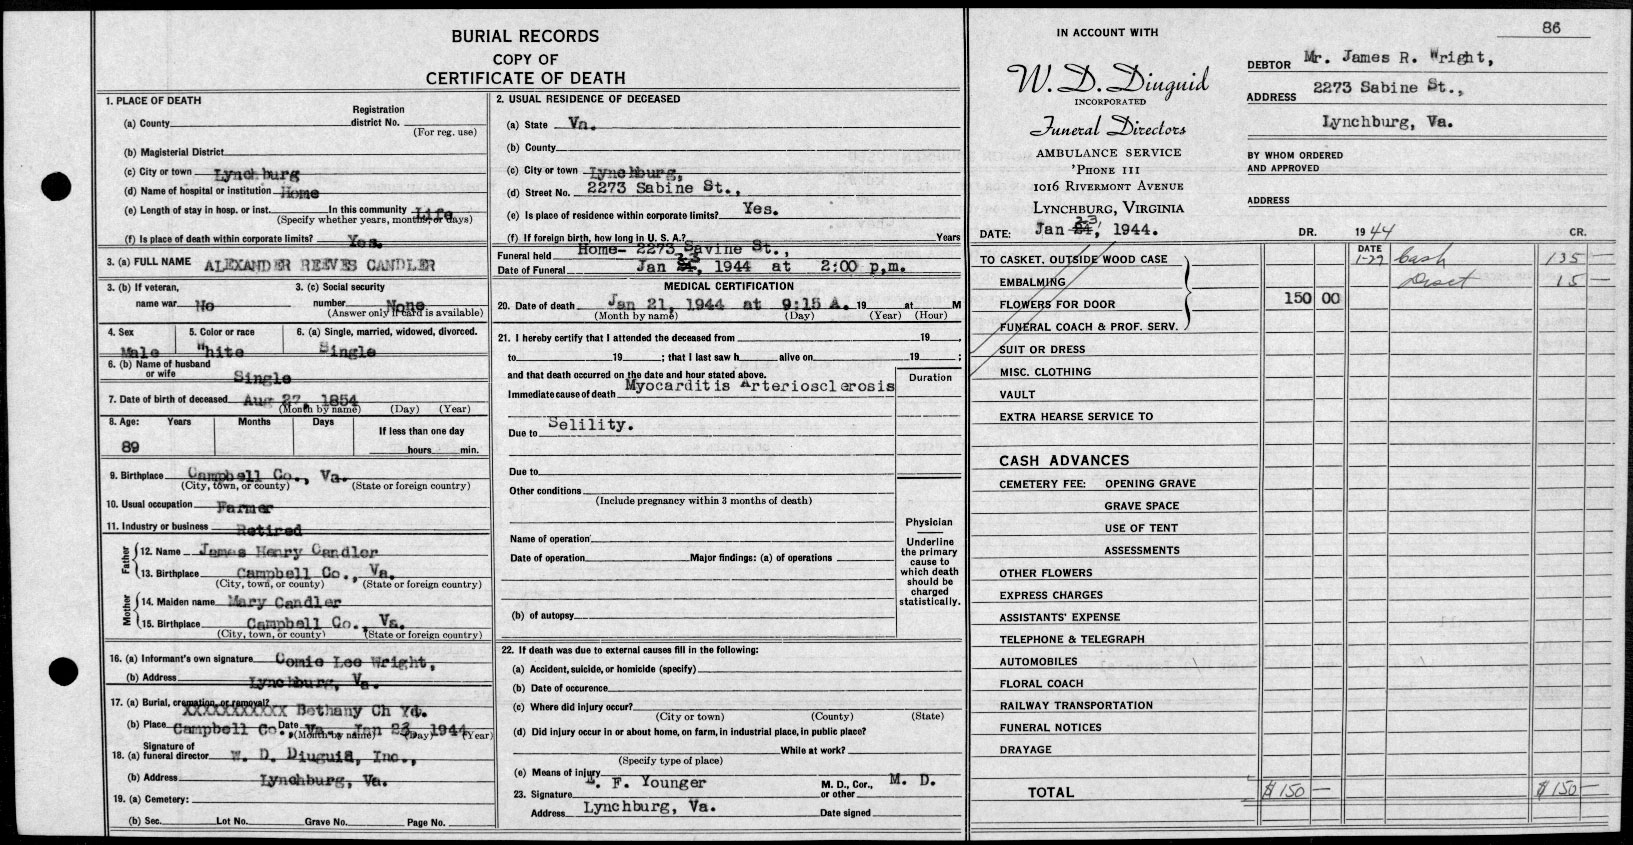 BURIAL RECORDS
COPY OF
CERTIFICATE OF DEATH
1. PLACE OF DEATH
(a) County
Registration district No.
(For reg. use)
(b) Magisterial District
(c) City or town Lynchburg
(d) Name of hospital or institution Home
(e) Length of stay in hosp. or inst. In this community Life
(Specify whether years, months, or days)
(f) Is place of death within corporate limits? Yes.
3. (a) FULL NAME ALEXANDER REEVES CANDLER
3. (b) If veteran, name war No
3. (c) Social security number None
(Answer only if card is available)
4. Sex Male
5. Color or race White
6. (a) Single, married, widowed, divorced. Single
6. (b) Name of husband or wife Single
7. Date of birth of deceased Aug 27, 1854
(Month by name) (Day) (Year)
8. Age: Years Months Days If less than one day
89 hours min.
9. Birthplace Campbell Co., Va.
(City, town, or county) (State or foreign country)
10. Usual occupation Farmer
11. Industry or business Retired
Father
12. Name James Henry Candler
13. Birthplace Campbell Co., Va.
(City, town, or county) (State or foreign country)
Mother
14. Maiden name Mary Candler
15. Birthplace Campbell Co., Va.
(City, town, or county) (State or foreign country)
16. (a) Informant's own signature Comie Lee Wright,
(b) Address Lynchburg, Va.
17. (a) Burial, cremation, or removal? XXXXXXXXXXX Bethany Ch Yd.
(b) Place Campbell Co., Va. Date Jan 23 1944
(Month by name) (Day) (Year)
18. (a) Signature of funeral director W. D. Diuguid, Inc.,
(b) Address Lynchburg, Va.
19. (a) Cemetery:
(b) Sec. Lot No. Grave No. Page No.
2. USUAL RESIDENCE OF DECEASED
(a) State Va.
(b) County
(c) City or town Lynchburg,
(d) Street No. 2273 Sabine St.,
(e) Is place of residence within corporate limits? Yes.
(f) If foreign birth, how long in U. S. A.? Years
Funeral held Home- 2273 Savine St.,
Date of Funeral Jan 23, 1944 at 2:00 p.m.
MEDICAL CERTIFICATION
20. Date of death Jan 21, 1944 at 9:15 A. 19 at M
(Month by name) (Day) (Year) (Hour)
21. I hereby certify that I attended the deceased from 19 ,
to 19 ; that I last saw h alive on 19 ;
and that death occurred on the date and hour stated above.
Duration
Immediate cause of death Myocarditis Arteriosclerosis
Due to Selility.
Due to
Other conditions
(Include pregnancy within 3 months of death)
Name of operation
Date of operation Major findings: (a) of operations
(b) of autopsy
Physician
Underline the primary cause to which death should be charged statistically.
22. If death was due to external causes fill in the following:
(a) Accident, suicide, or homicide (specify)
(b) Date of occurence
(c) Where did injury occur?
(City or town) (County) (State)
(d) Did injury occur in or about home, on farm, in industrial place, in public place?
While at work?
(Specify type of place)
(e) Means of injury
23. Signature F. Younger M. D., Cor., or other M. D.
Address Lynchburg, Va. Date signed
86
IN ACCOUNT WITH
W. D. Diuguid
INCORPORATED
Funeral Directors
AMBULANCE SERVICE
'PHONE 111
1016 RIVERMONT AVENUE
LYNCHBURG, VIRGINIA
DATE: Jan 23, 1944.
DEBTOR Mr. James R. Wright,
ADDRESS 2273 Sabine St.,
Lynchburg, Va.
BY WHOM ORDERED AND APPROVED
ADDRESS
DR. 1944 CR.
DATE
TO CASKET, OUTSIDE WOOD CASE 1-29 Cash 135 —
EMBALMING Disct 15 —
FLOWERS FOR DOOR 150 00
FUNERAL COACH & PROF. SERV.
SUIT OR DRESS
MISC. CLOTHING
VAULT
EXTRA HEARSE SERVICE TO
CASH ADVANCES
CEMETERY FEE: OPENING GRAVE
GRAVE SPACE
USE OF TENT
ASSESSMENTS
OTHER FLOWERS
EXPRESS CHARGES
ASSISTANTS' EXPENSE
TELEPHONE & TELEGRAPH
AUTOMOBILES
FLORAL COACH
RAILWAY TRANSPORTATION
FUNERAL NOTICES
DRAYAGE
TOTAL $150 — $150 —